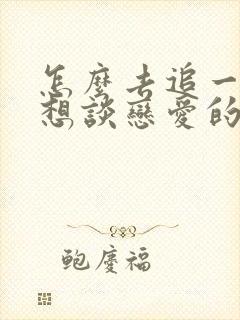 怎麼去追一
想談戀愛的
鮑慶福